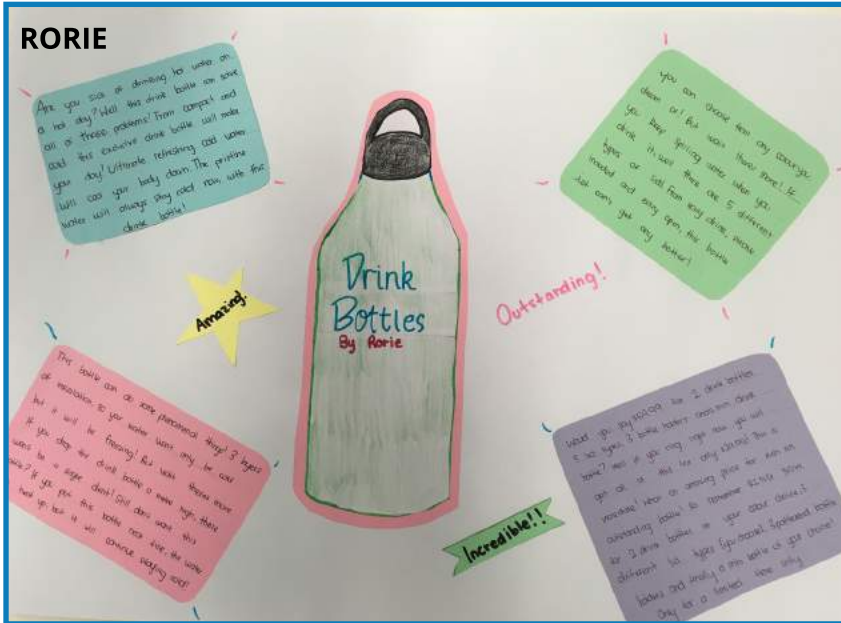 RORIE
Are you sick of drinking hot water on
a hot day? Well this drink bottle can solve
all of those problems! From compact and
cold this exclusive drink bottle will make
your day! Ultimate refreshing cold water
will cool your body down. The pristine
water will always stay cold now, with this
drink bottle!
you can choose from any colour you
dream of! But wait theres more! If
you keep spilling water when you
drink it, well there are 5 different
types of lids! From easy drink, straw
included and easy open, this bottle
just can't get any better!
Drink
Bottles
By Rorie
Amazing.
Outstanding!
This bottle can do some phenomenal things! 3 layers
of insulation so your water wont only be cold
but it will be freezing! But wait theres more
if you drop the drink bottle a metre high, there
wont be a single dent! Still dont want this
bottle? If you put this bottle near fire, the water
heat up, but it will continue staying cold!
Incredible!!
Would you pay $ for 2 drink bottles
5 lid types 3 bottle holders and a mini drink
bottle? Well if you ring right now you will
get all of this for only This is
What an amazing price for such an
outstanding bottle! So remember
for 2 drink bottles in your colour choice, 5
different lid types (you choose), 3 patterned bottle
holders and finally a mini bottle of your choice!
Only for a limited time only